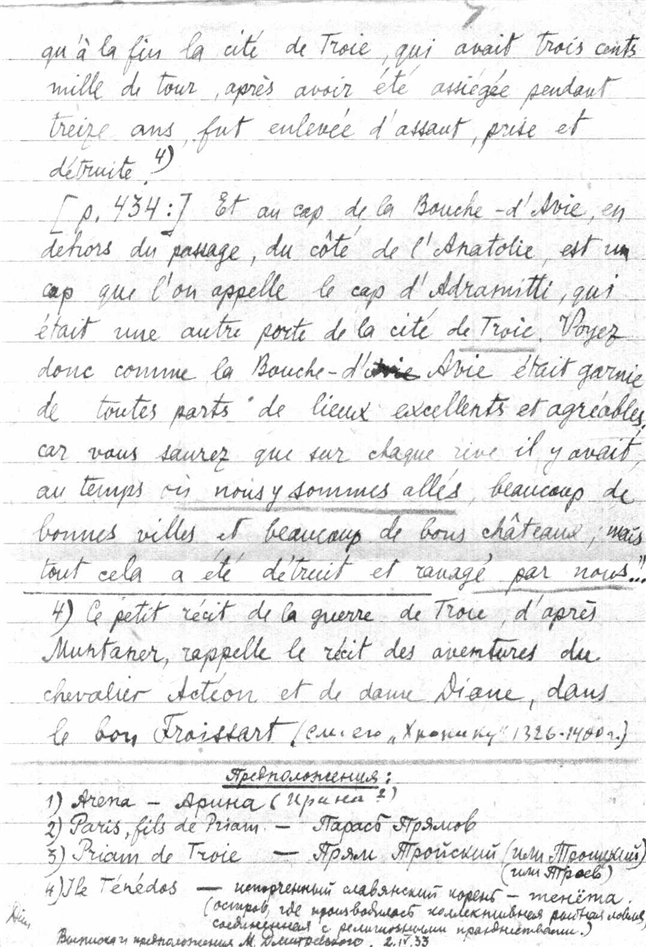 qu'à la fin la cité de Troie, qui avait trois cents
mille de tour, après avoir été assiégée pendant
treize ans, fut enlevée d'assaut, prise et
détruite.4)
[p. 434:] Et au cap de la Bouche-d'Avie, en
dehors du passage, du côté de l'Anatolie, est un
cap que l'on appelle le cap d'Adramitti, qui
était une autre porte de la cité de Troie. Voyez
donc comme la Bouche-d'Avie était garnie
de toutes parts de lieux excellents et agréables,
car vous saurez que sur chaque rive il y avait,
au temps où nous y sommes allés, beaucoup de
bonnes villes et beaucoup de bons châteaux; mais
tout cela a été détruit et ravagé par nous..!!
4) Ce petit récit de la guerre de Troie, d'après
Muntaner, rappelle le récit des aventures du
chevalier Actéon et de dame Diane, dans
le bon Froissart (см. его „Хронику" 1326-1400 г.)
Предположения:
1) Arena — Арина (Ирина?)
2) Paris, fils de Priam — Парасъ Прямов
3) Priam de Troie — Прям Тройский (или Троицкий)
(или Троев)
4) Ile Ténédos — испорченный славянский корень — тенёта.
(остров, где производилась коллективная ловля,
соединенная с религиозными празднествами.)
Выписка и предположения М. 2.IV.33